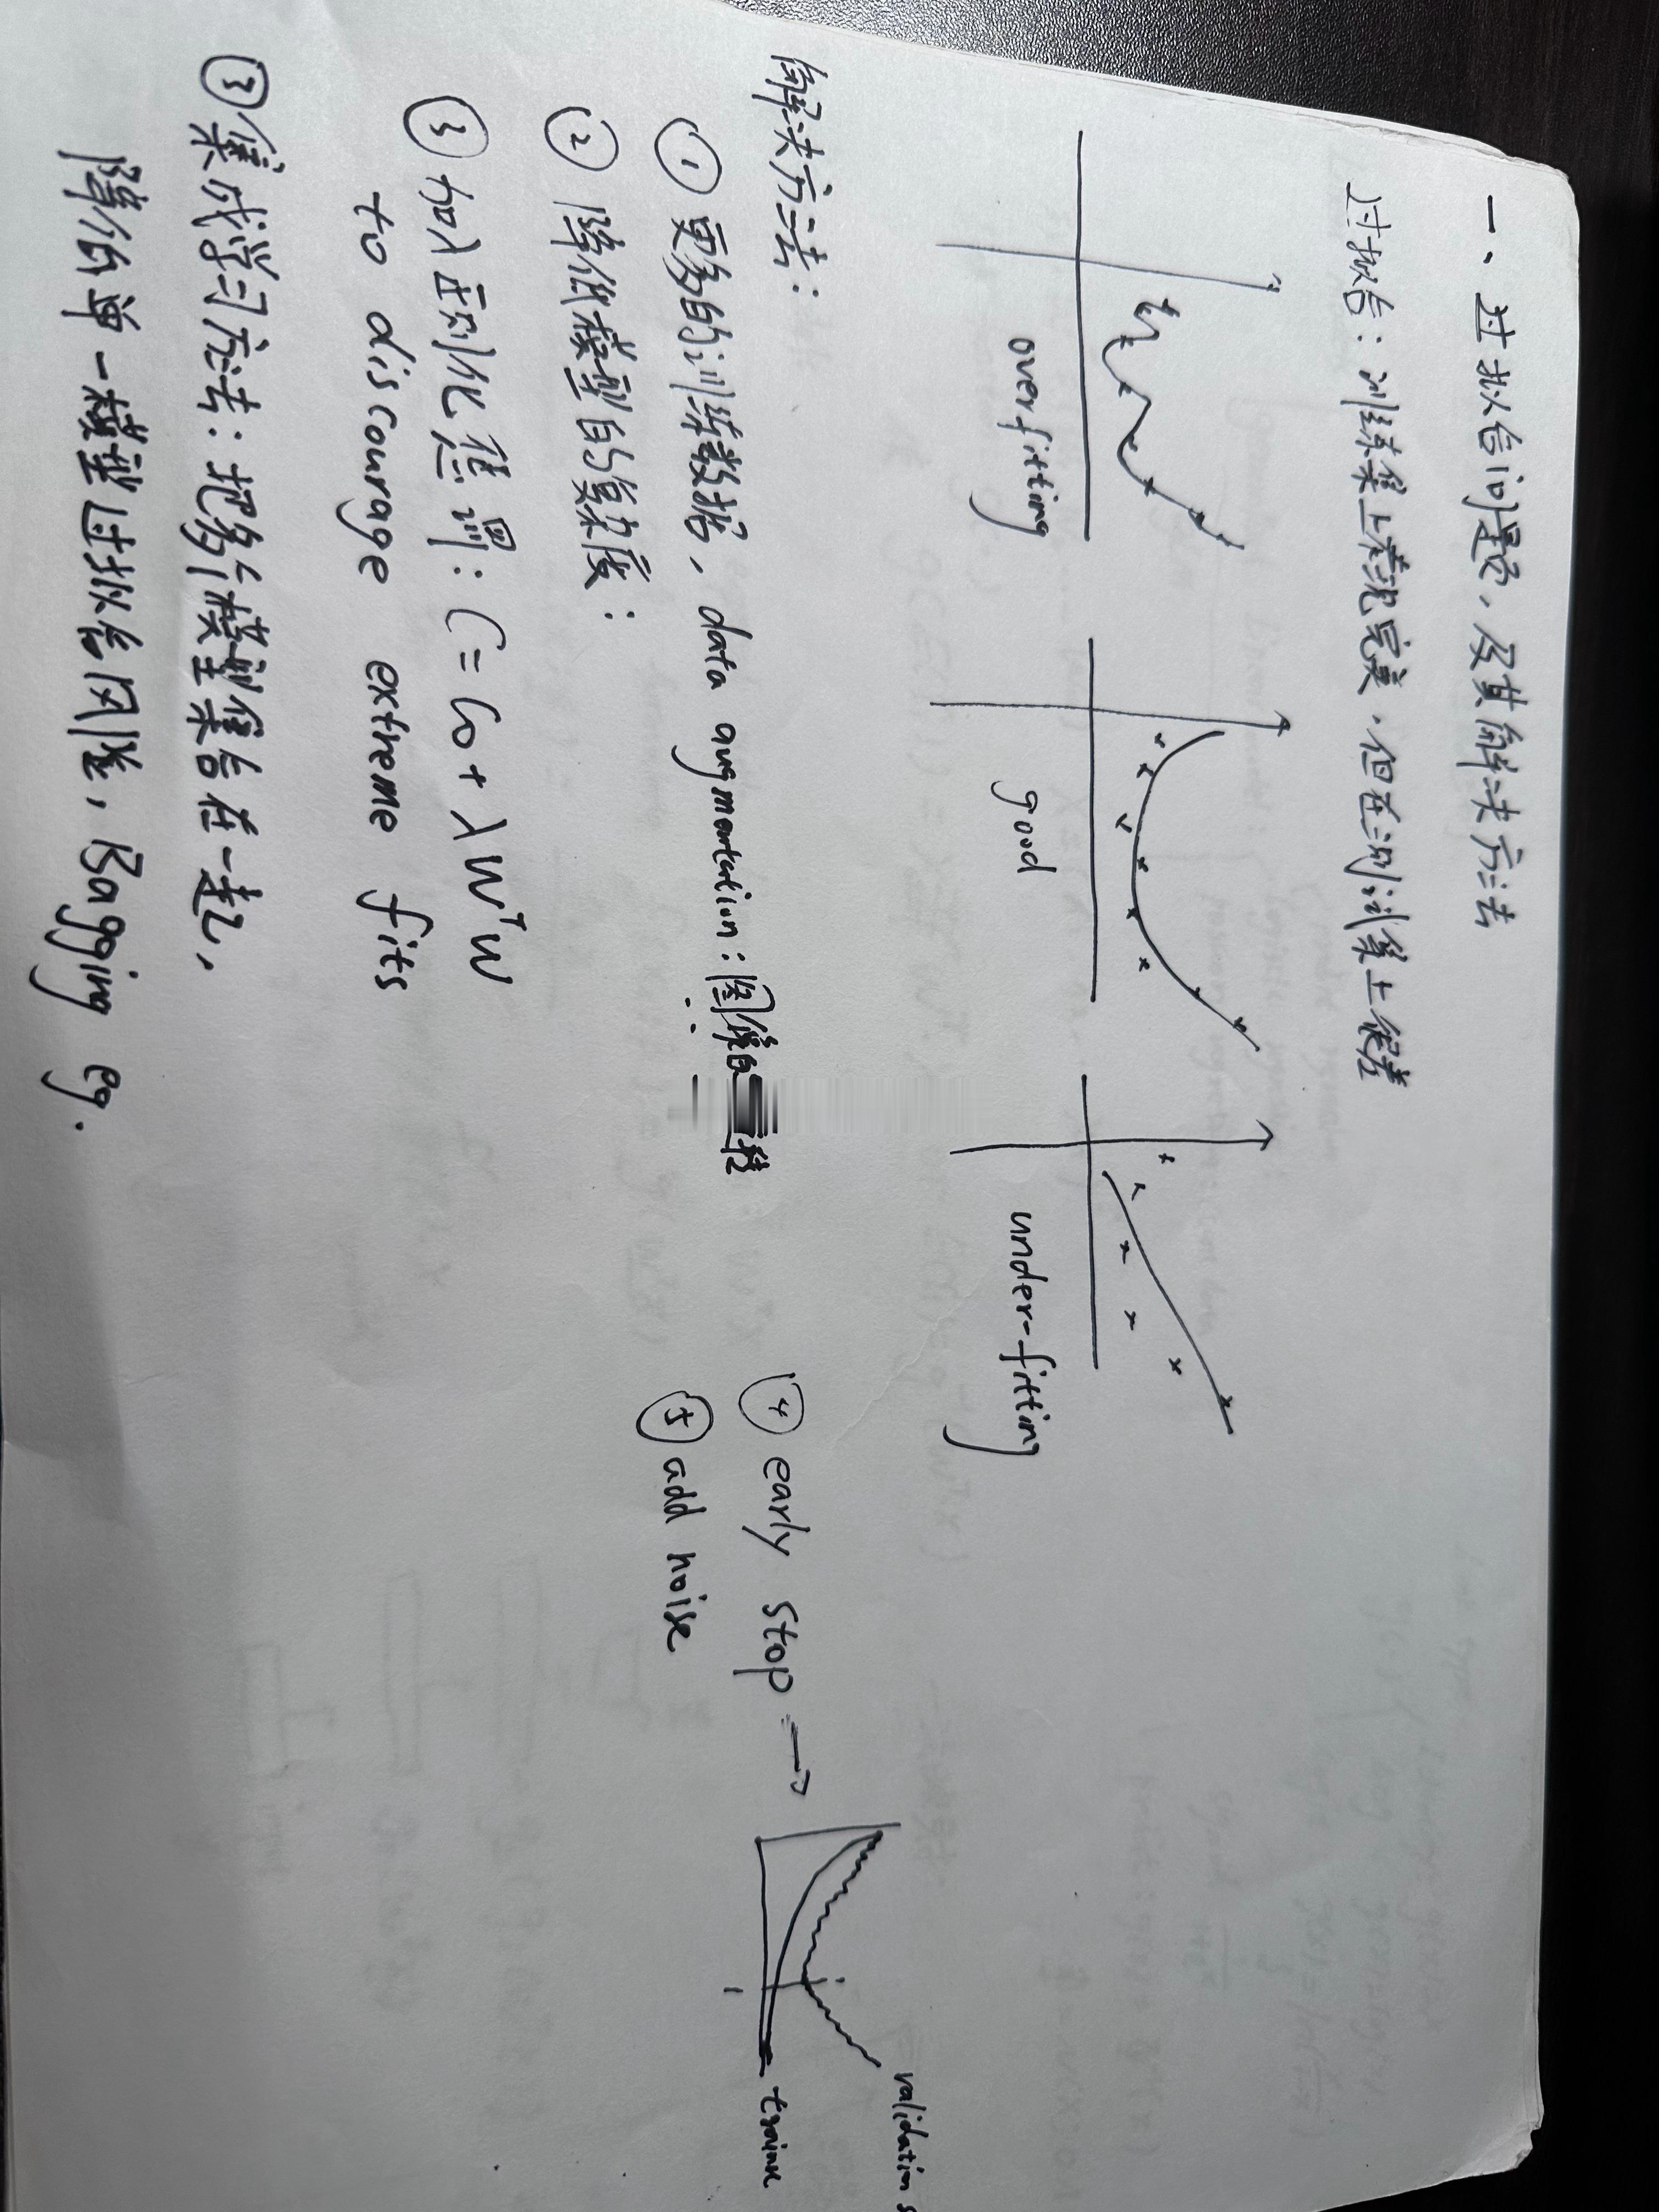 一、过拟合问题,及其解决方法
过拟合:训练集上表现完美,但在测试集上很差
overfitting
good
under-fitting
解决方法:
① 更多的训练数据, data augmentation:图像的 转
② 降低模型的复杂度:
③ 加λ正则化惩罚: C = C0 + λ WᵀW
to discourage extreme fits
③ 集成学习方法:把多个模型集合在一起,
降低单一模型过拟合风险, Bagging eg.
④ early stop →
validation
⑤ add noise